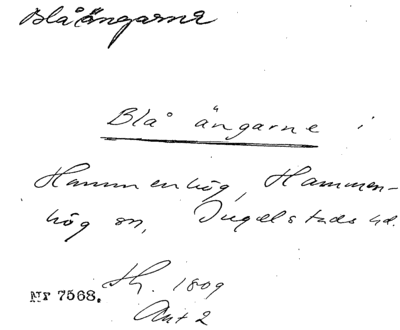 Blåängarne
Blå ängarne i
Hammenhög, Hammen-
hög sn, Ingelstads hd.
Sk. 1809
Nr 7568.
Akt 2